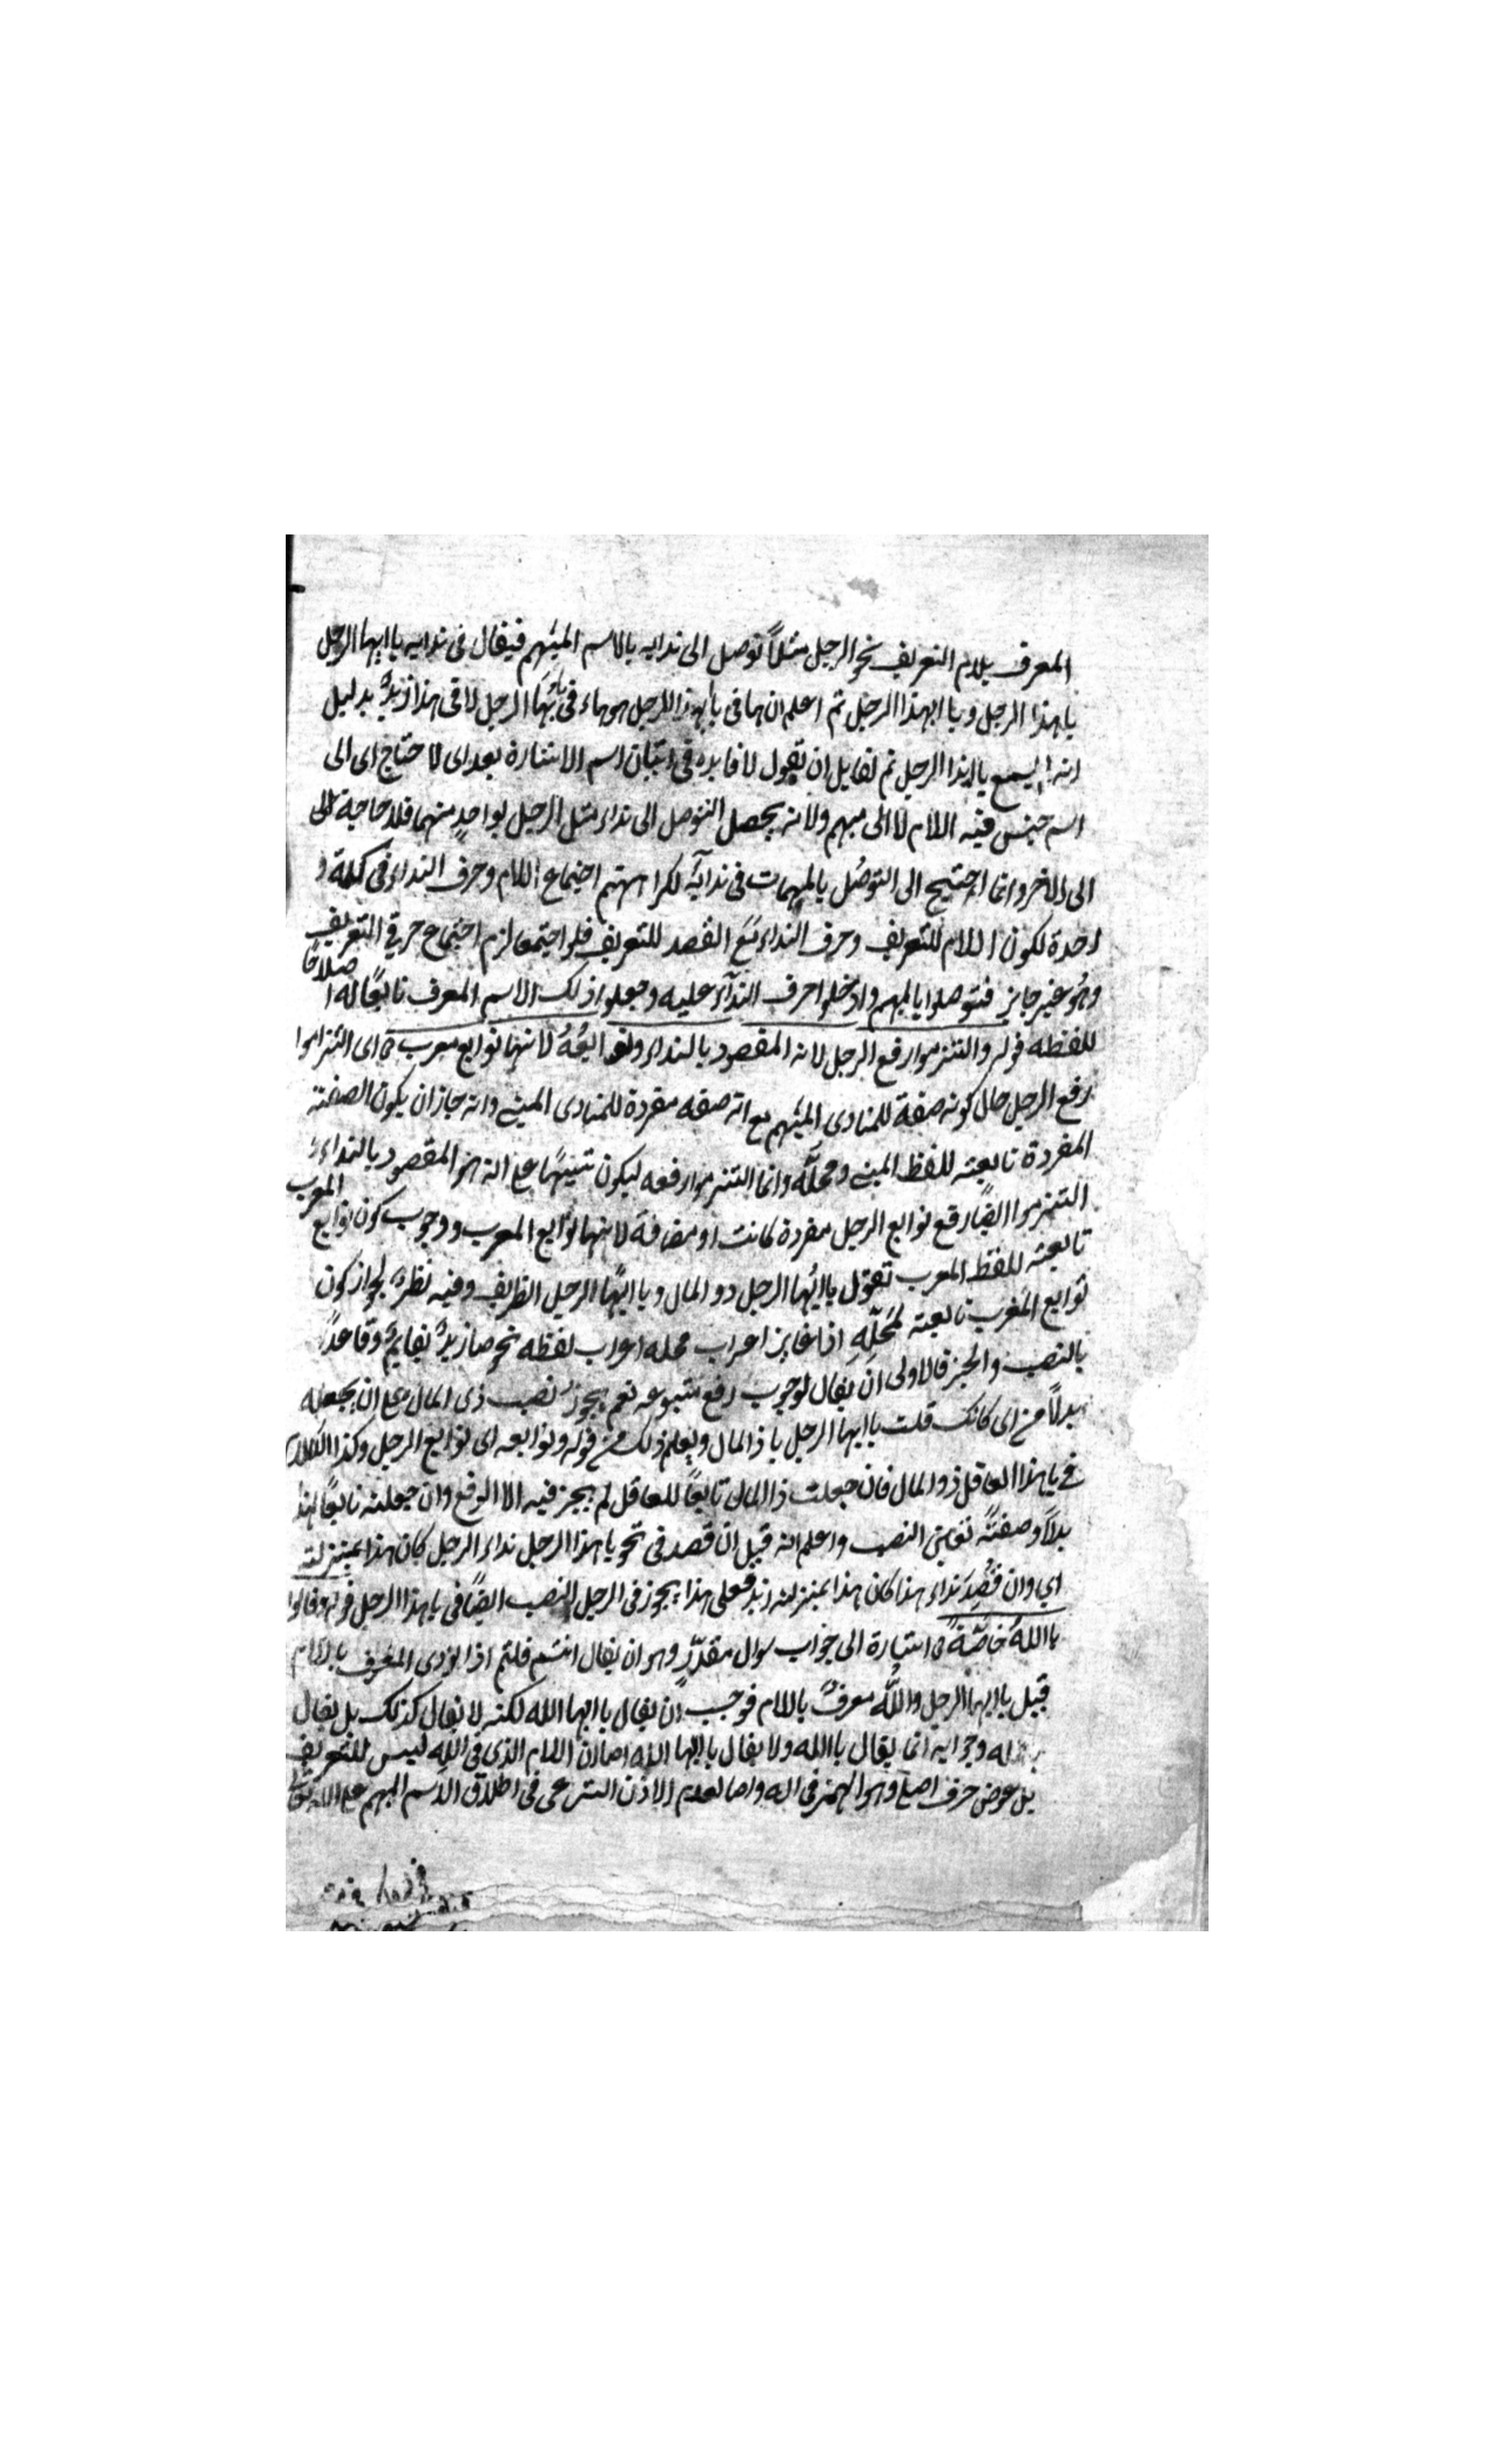 المعرف بلام التعريف نحو الرجل مثلاً توصل الى ندايه بالاسم المبهم فيقال فى ندايه يا ايها الرجل
يا هذا الرجل ويا ايهذا الرجل ثم اعلم ان ها فى يا ايهذا الرجل هو هاء فى يا ايُّها الرجل لا فى هذا زيدٌ بدليل
انه لم يسمع يا اىذا الرجل ثم لقايل ان تقول لا فايده فى اتيان اسم الاشارة بعد اى لاحتياج اى الى
اسم جنس فيه اللام لا الى مبهم ولانه يحصل التوصل الى نداء مثل الرجل بواحدٍ منهما فلا حاجة الى
الى الاخر وانما احتيج الى التوصُل بالمبهمات فى ندآئه لكراهتهم اجتماع اللام وحرف النداء فى كلمة و
احدة لكون اللام للتعريف وحرف النداء مَعَ القصد للتعريف فلو اجتمعا لزم اجتماع حرفي التعريف
وهُو غير جايز فتوصلوا بالمبهم وادخلوا حرف الندآء عليه وجعلوا ذلك الاسم المعرف تابعًا له ا
صلاحًا
للفظه قوله والتزموا رفع الرجل لانه المقصود بالنداء وتوابعُهُ لانها توابع معرب اى التزموا
رفع الرجل حال كونه صفة للمنادى المبهم مع انه صفه مفردة للمنادى المبنى وانه جاز ان يكون الصفة
المفردة تابعة للفظ المبنى ومحلّه وانما التزموا رفعه ليكون تنبيهًا على انه هو المقصود بالنداء و
التزموا ايضًا رفع توابع الرجل مفردة كانت او مضافة لانها توابع المعرب ووجوب كون توابع
المعرب
تابعة للفظ المعرب تقول يا ايُّها الرجل ذو المال ويا ايّها الرجل الظريف وفيه نظرٌ لجواز كون
توابع المعرب تابعة لمحَلّهِ اذا غاير اعراب محله اعراب لفظه نحو ما زيدٌ بقايمٍ وقاعدًا
بالنصب والجر فالاولى ان يقال لوجوب رفع متبوعه نعم يجوز نصب ذى المال على ان يجعله
بدلاً من اى كانك قلت يا ايها الرجل يا ذا المال ويعلم ذلك من قوله وتوابعه اى توابع الرجل وكذا الكلام
في يا هذا العاقل ذو المال فان جعلت ذا المال تابعًا للعاقل لم يجز فيه الا الرفع وان جعلته تابعًا لهذا
بدلاً وصفةً تعين النصب واعلم انه قيل ان قصد فى نحو يا هذا الرجل نداء الرجل كان هذا بمنزلة
اي وان قُصِدَ نداء هذا كان هذا بمنزلة زيد فعلى هذا يجوز فى الرجل النصب ايضًا فى يا هذا الرجل قوله وقالوا
يا اللهُ خاصّةً اشارة الى جواب سوال مقدّرٍ وهو ان يقال انتم قلتم اذا نودى المعرف باللام
قيل يا ايها الرجل واللّه معرفٌ باللام فوجب ان يقال يا ايها الله لكنه لا يقال كذلك بل يقال
يا الله وجوابه انما يقال يا الله ولا يقال يا ايها الله اما لان اللام الذى فى اللهِ ليس للتعريف
بل عوض حرف اصلي وهو الهمزه فى اله واما لعدم الاذن الشرعى فى اطلاق الاسم المبهم على الله تعالى